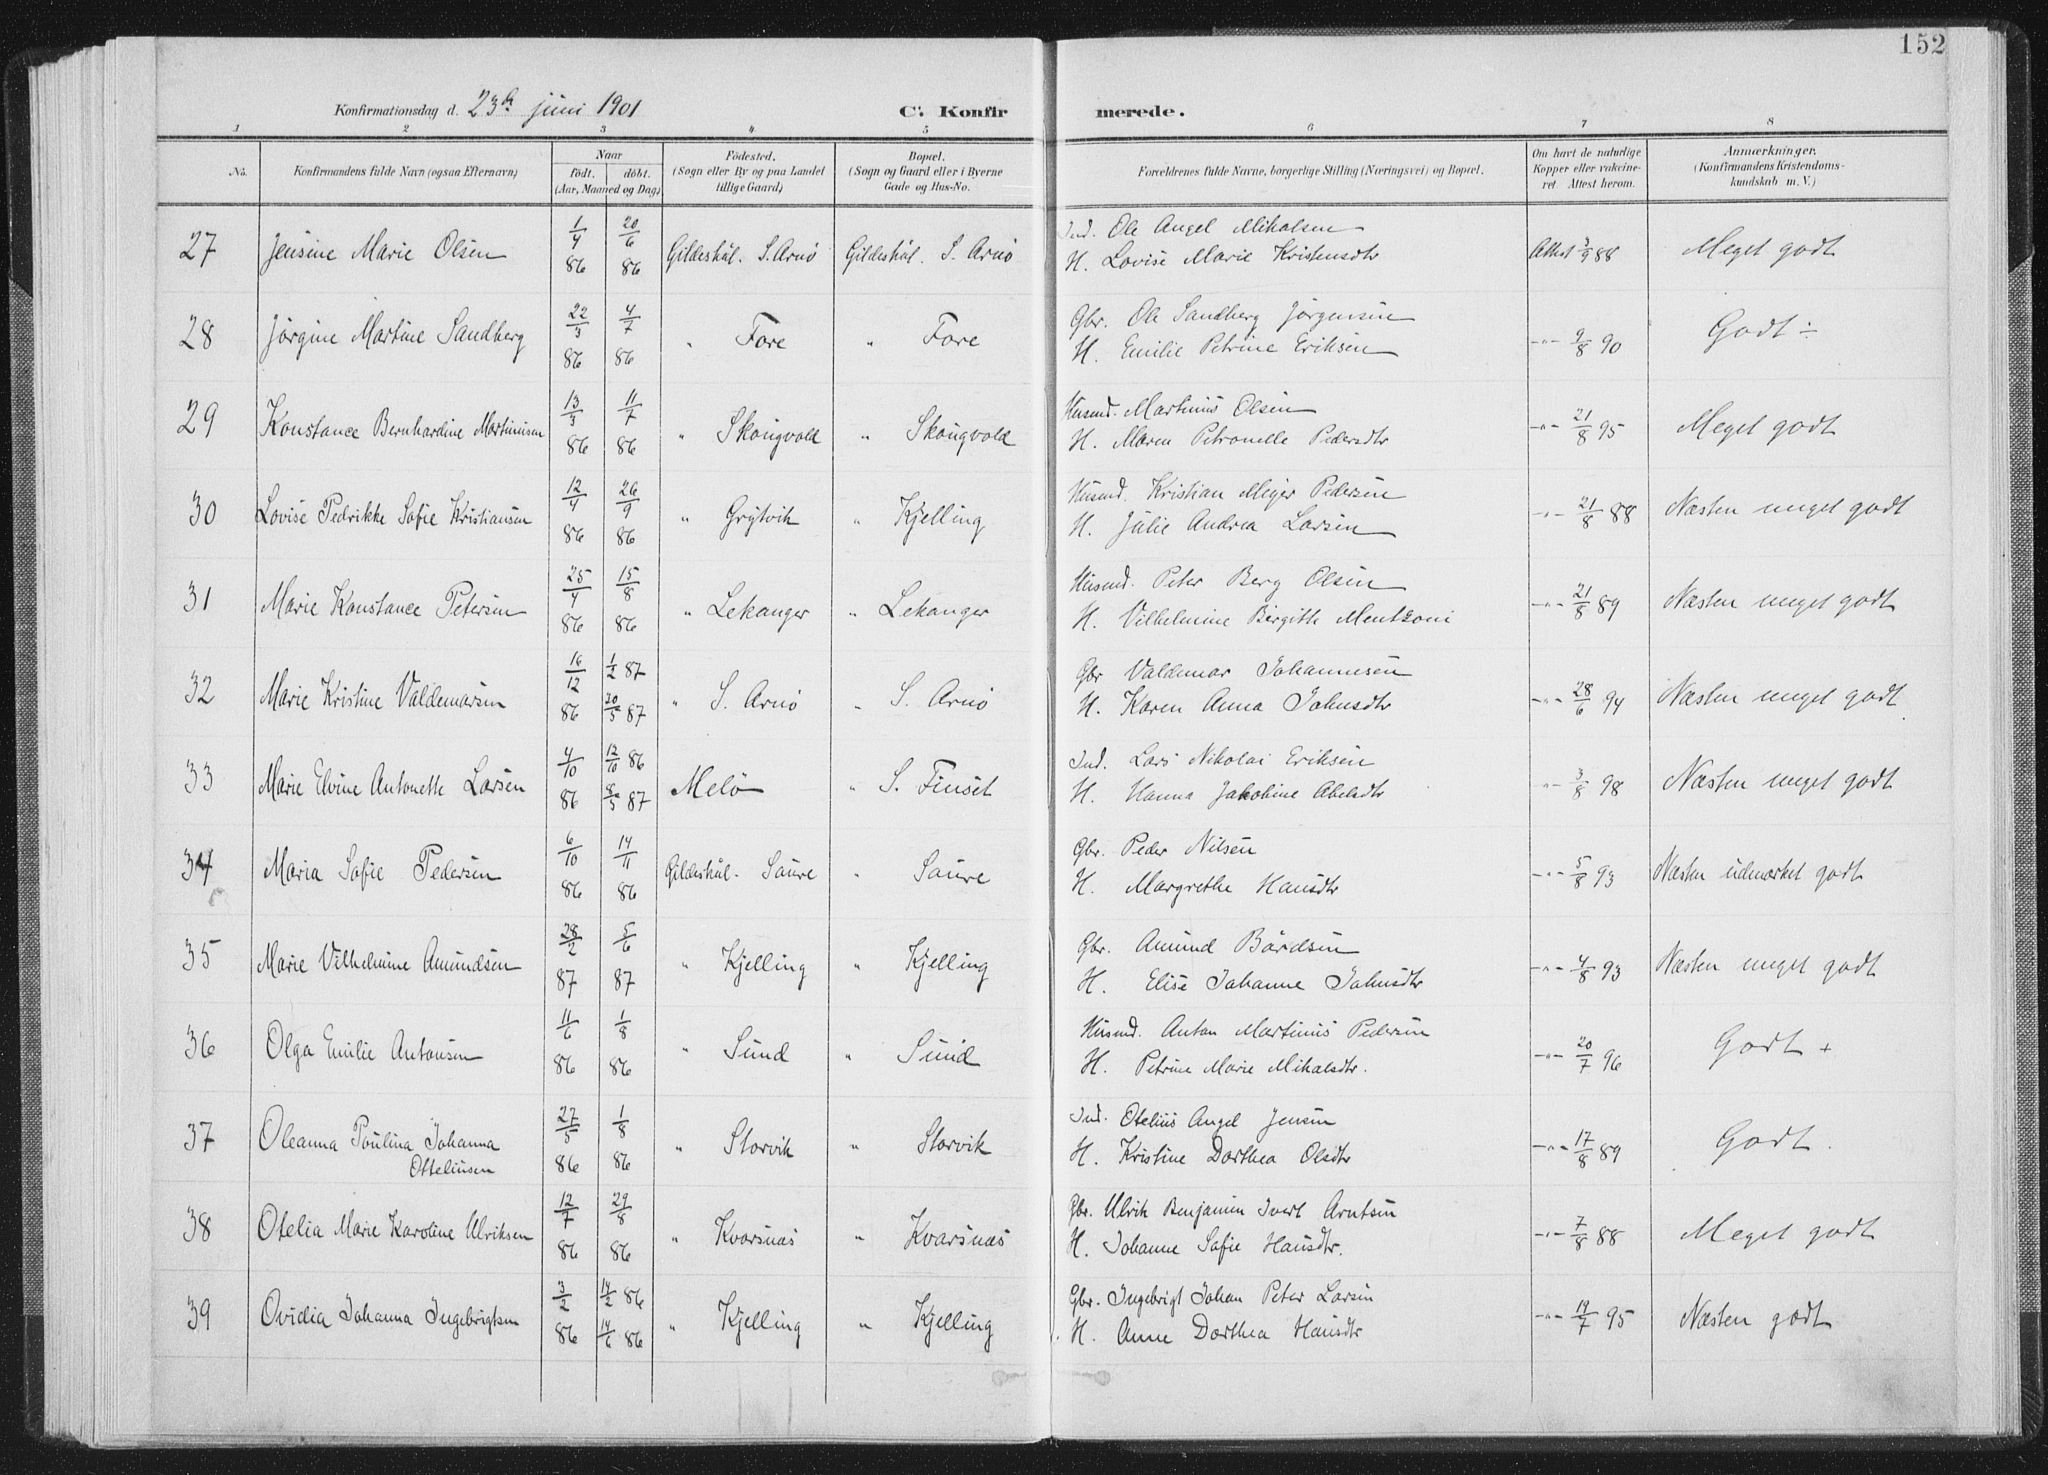 152
Konfirmationsdag d. 23de juni 1901 C. Konfirmerede.
1 2 3 4 5 6 7 8
No. Konfirmandens fulde Navn (ogsaa Efternavn) Naar födt. döbt. (Aar, Maaned og Dag) Födested. (Sogn eller By og paa Landet tillige Gaard) Bopæl. (Sogn og Gaard eller i Byerne Gade og Hus-No. Forældrenes fulde Navne, borgerlige Stilling (Næringsvei) og Bopæl. Om havt de naturlige Kopper eller vakcineret Attest herom. Anmærkninger. (Konfirmandens Kristendomskundskab m. V.)
27 Jensine Marie Olsen 1/4 86 20/6 86 Gildeskål. S. Arnö Gildeskål. S. Arnö Ind. Ole Angel Mikalsen
H. Lovise Marie Kristensdtr Attest 3/9 88 Meget godt
28 Jörgine Martine Sandberg 22/3 86 4/7 86 " Fore " Fore Gbr. Ole Sandberg Jörgensen
H. Emilie Petrine Eriksen -"- 9/8 90 Godt ÷
29 Konstance Bernhardine Martinusen 13/3 86 11/7 86 " Skougvold " Skougvold Husmd. Martinus Olsen
H. Maren Petronelle Pedersdtr -"- 21/8 95 Meget godt
30 Lovise Pedrikke Sofie Kristiansen 12/4 86 26/9 86 " Grytvik " Kjelling Husmd. Kristian Meyer Pedersen
H. Julie Andrea Larsen -"- 21/8 88 Næsten meget godt
31 Marie Konstance Petersen 25/4 86 15/8 86 " Lekanger " Lekanger Husmd. Peter Berg Olsen
H. Vilhelmine Birgitte Mentzoni -"- 21/8 89 Næsten meget godt
32 Marie Kristine Valdemarsen 16/12 86 1/2 87 30/5 87 " S. Arnö " S. Arnö Gbr Valdemar Johannesen
H. Karen Anna Johnsdtr -"- 28/6 94 Næsten meget godt
33 Marie Elvine Antonette Larsen 4/10 86 12/10 86 8/5 87 Melö " S. Finset Ind. Lars Nikolai Eriksen
H. Hanna Jakobine Abelsdtr -"- 3/8 98 Næsten meget godt
34 Maria Sofie Pedersen 6/10 86 14/11 86 Gildeskål. Saure " Saure Gbr. Peder Nilsen
H. Margrethe Hansdtr -"- 5/8 93 Næsten udmærket godt
35 Marie Vilhelmine Amundsen 28/2 87 5/6 87 " Kjelling " Kjelling Gbr. Amund Bårdsen
H. Elise Johanne Johnsdtr -"- 4/8 93 Næsten meget godt
36 Olga Emilie Antonsen 11/6 86 1/8 86 " Sund " Sund Husmd. Anton Martinus Pedersen
H. Petrine Marie Mikalsdtr. -"- 20/7 96 Godt +
37 Oleanna Poulina Johanna
Otteliusen 27/5 86 1/8 86 " Storvik " Storvik Ind. Otelius Angel Jensen
H. Kristine Dorthea Olsdtr -"- 17/8 89 Godt.
38 Otelia Marie Karoline Ulriksen 12/7 86 29/8 86 " Kvarsnæs " Kvarsnæs Gbr. Ulrik Benjamin Ivert Arntsen
H. Johanne Sofie Hansdtr. -"- 7/8 88 Meget godt
39 Ovidia Johanna Ingebrigtsen 3/2 86 14/2 86 14/6 86 " Kjelling " Kjelling Gbr. Ingebrigt Johan Peter Larsen
H. Anne Dorthea Hansdtr -"- 19/7 95 Næsten godt